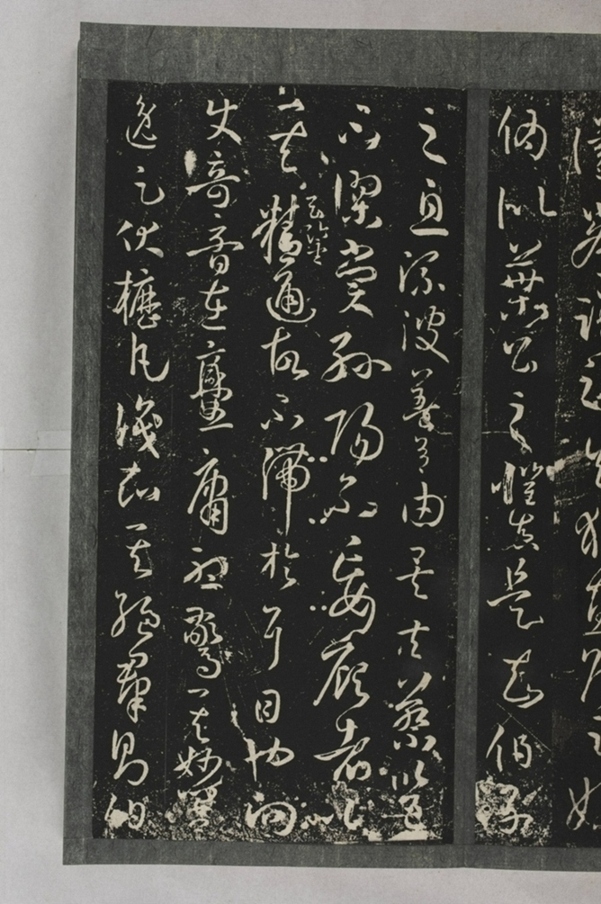 偽似葉公之懼真是知伯子
之息流波蓋有由矣夫蔡邕
不謬賞孫陽不妄顧者以
其玄鑒精通故不滯於耳目也向
使奇音在爨庸聽驚其妙響
逸足伏櫪凡識知其絕群則伯